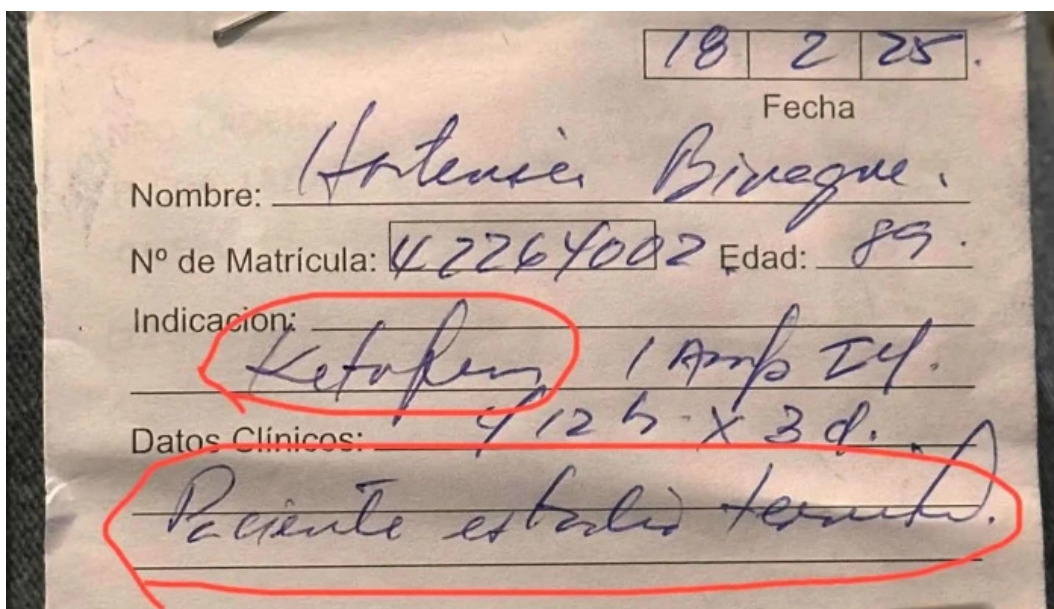 18 2 25.
Fecha
Nombre: Hortensia
Nº de Matrícula: 42264002 Edad: 89.
Indicación:
Ketofen 1 Amp IM.
Datos Clínicos: c/12 h x 3 d.
Paciente estadio terminal.